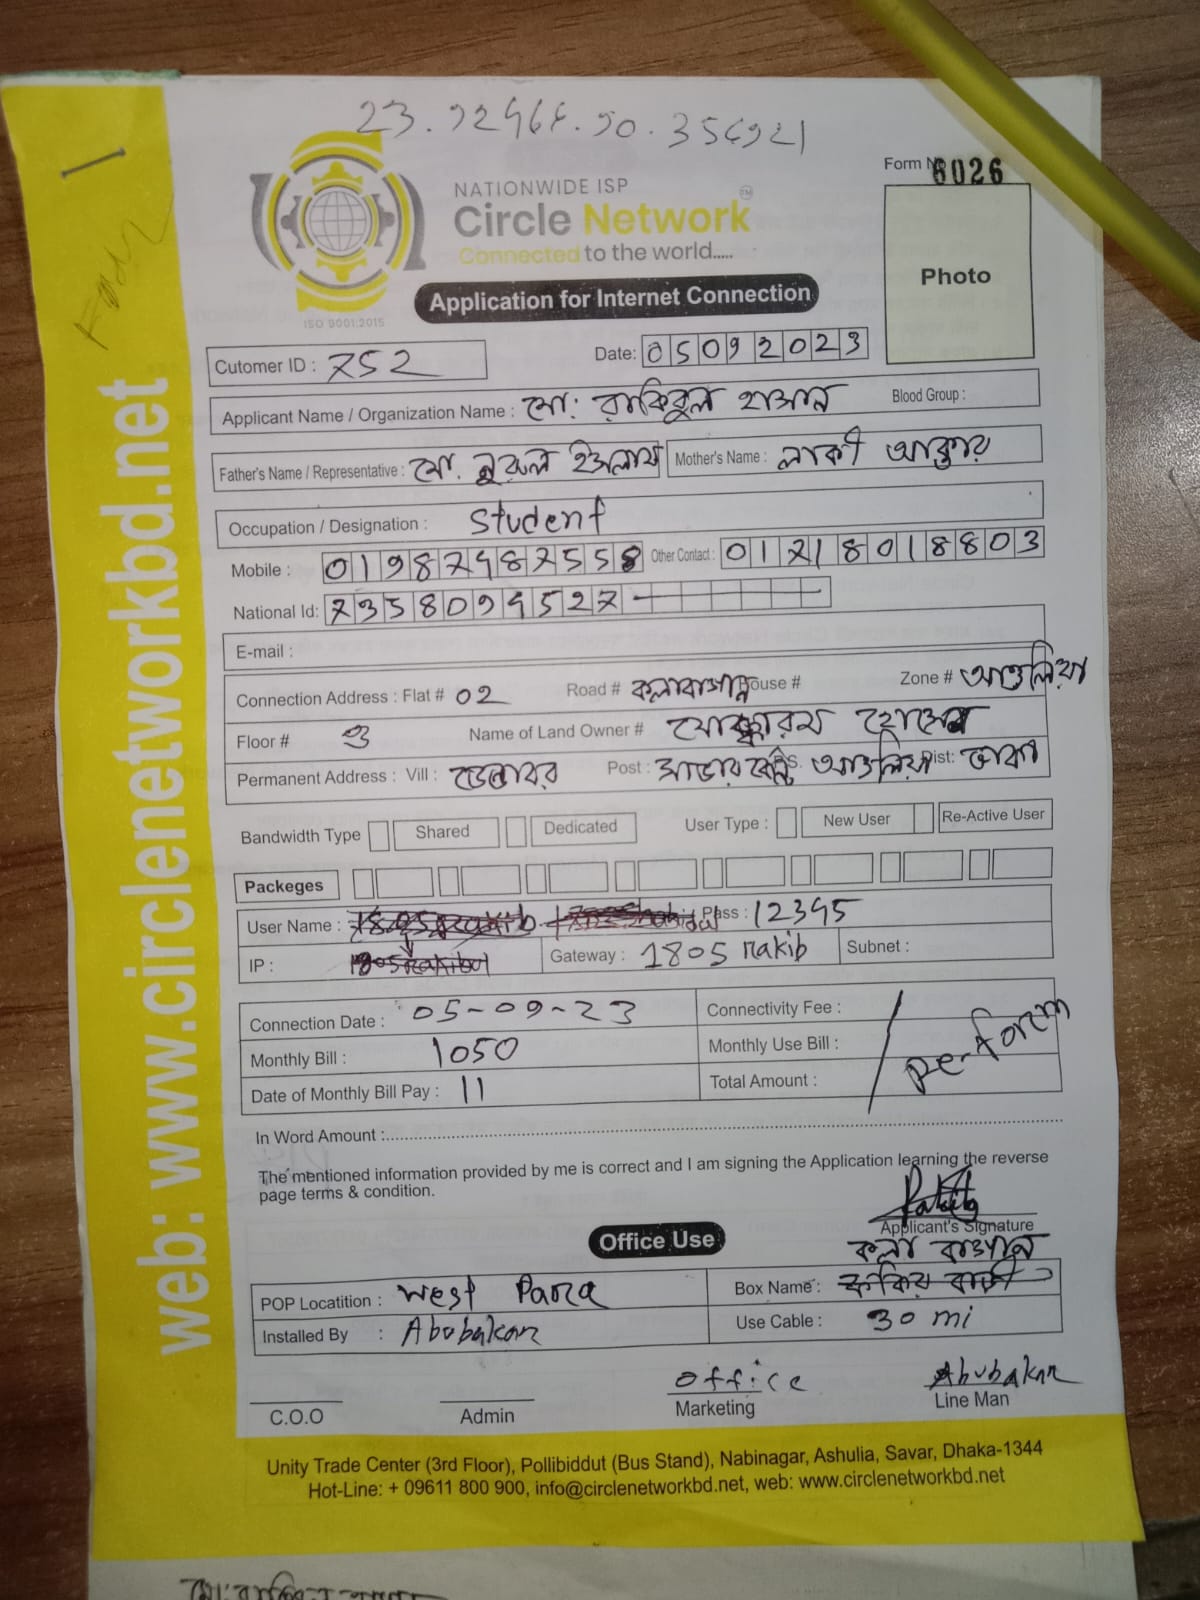 Form No 6026
NATIONWIDE ISP
Circle Network
TM
Connected to the world.....
ISO 9001:2015
Photo
Application for Internet Connection
Cutomer ID : 752
Date: 05092023
Applicant Name / Organization Name : মো: রাকিবুল হাসান Blood Group :
Father's Name / Representative : মো. নুরুল ইসলাম Mother's Name : লাকী আক্তার
Occupation / Designation : Student
Mobile : Other Contact : 01718018803
National Id: 7358094527
E-mail :
Connection Address : Flat # 02 Road # কলাবাগান House # Zone # আশুলিয়া
Floor # 3 Name of Land Owner # হোসেন
Permanent Address : Vill : ডেন্ডাবর Post : সাভার ক্যান্ট P.S. আশুলিয়া Dist: ঢাকা
Bandwidth Type Shared Dedicated User Type : New User Re-Active User
Packeges
User Name : Pass : 12345
IP : Gateway : 1805 rakib Subnet :
Connection Date : 05-09-23 Connectivity Fee :
Monthly Bill : 1050 Monthly Use Bill :
Date of Monthly Bill Pay : 11 Total Amount :
per-form
In Word Amount :
The mentioned information provided by me is correct and I am signing the Application learning the reverse
page terms & condition.
Rakib
Applicant's Signature
Office Use
কলা বাগান
POP Locatition : West Para Box Name :
Installed By : Abubakar Use Cable : 30 mi
C.O.O
Admin
office
Marketing
Abubakar
Line Man
Unity Trade Center (3rd Floor), Pollibiddut (Bus Stand), Nabinagar, Ashulia, Savar, Dhaka-1344
Hot-Line: + 09611 800 900, info@circlenetworkbd.net, web: www.circlenetworkbd.net
web: www.circlenetworkbd.net